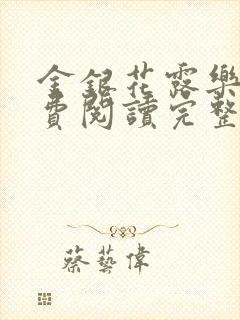 金銀花露樂
費閱讀完整
蔡藝偉